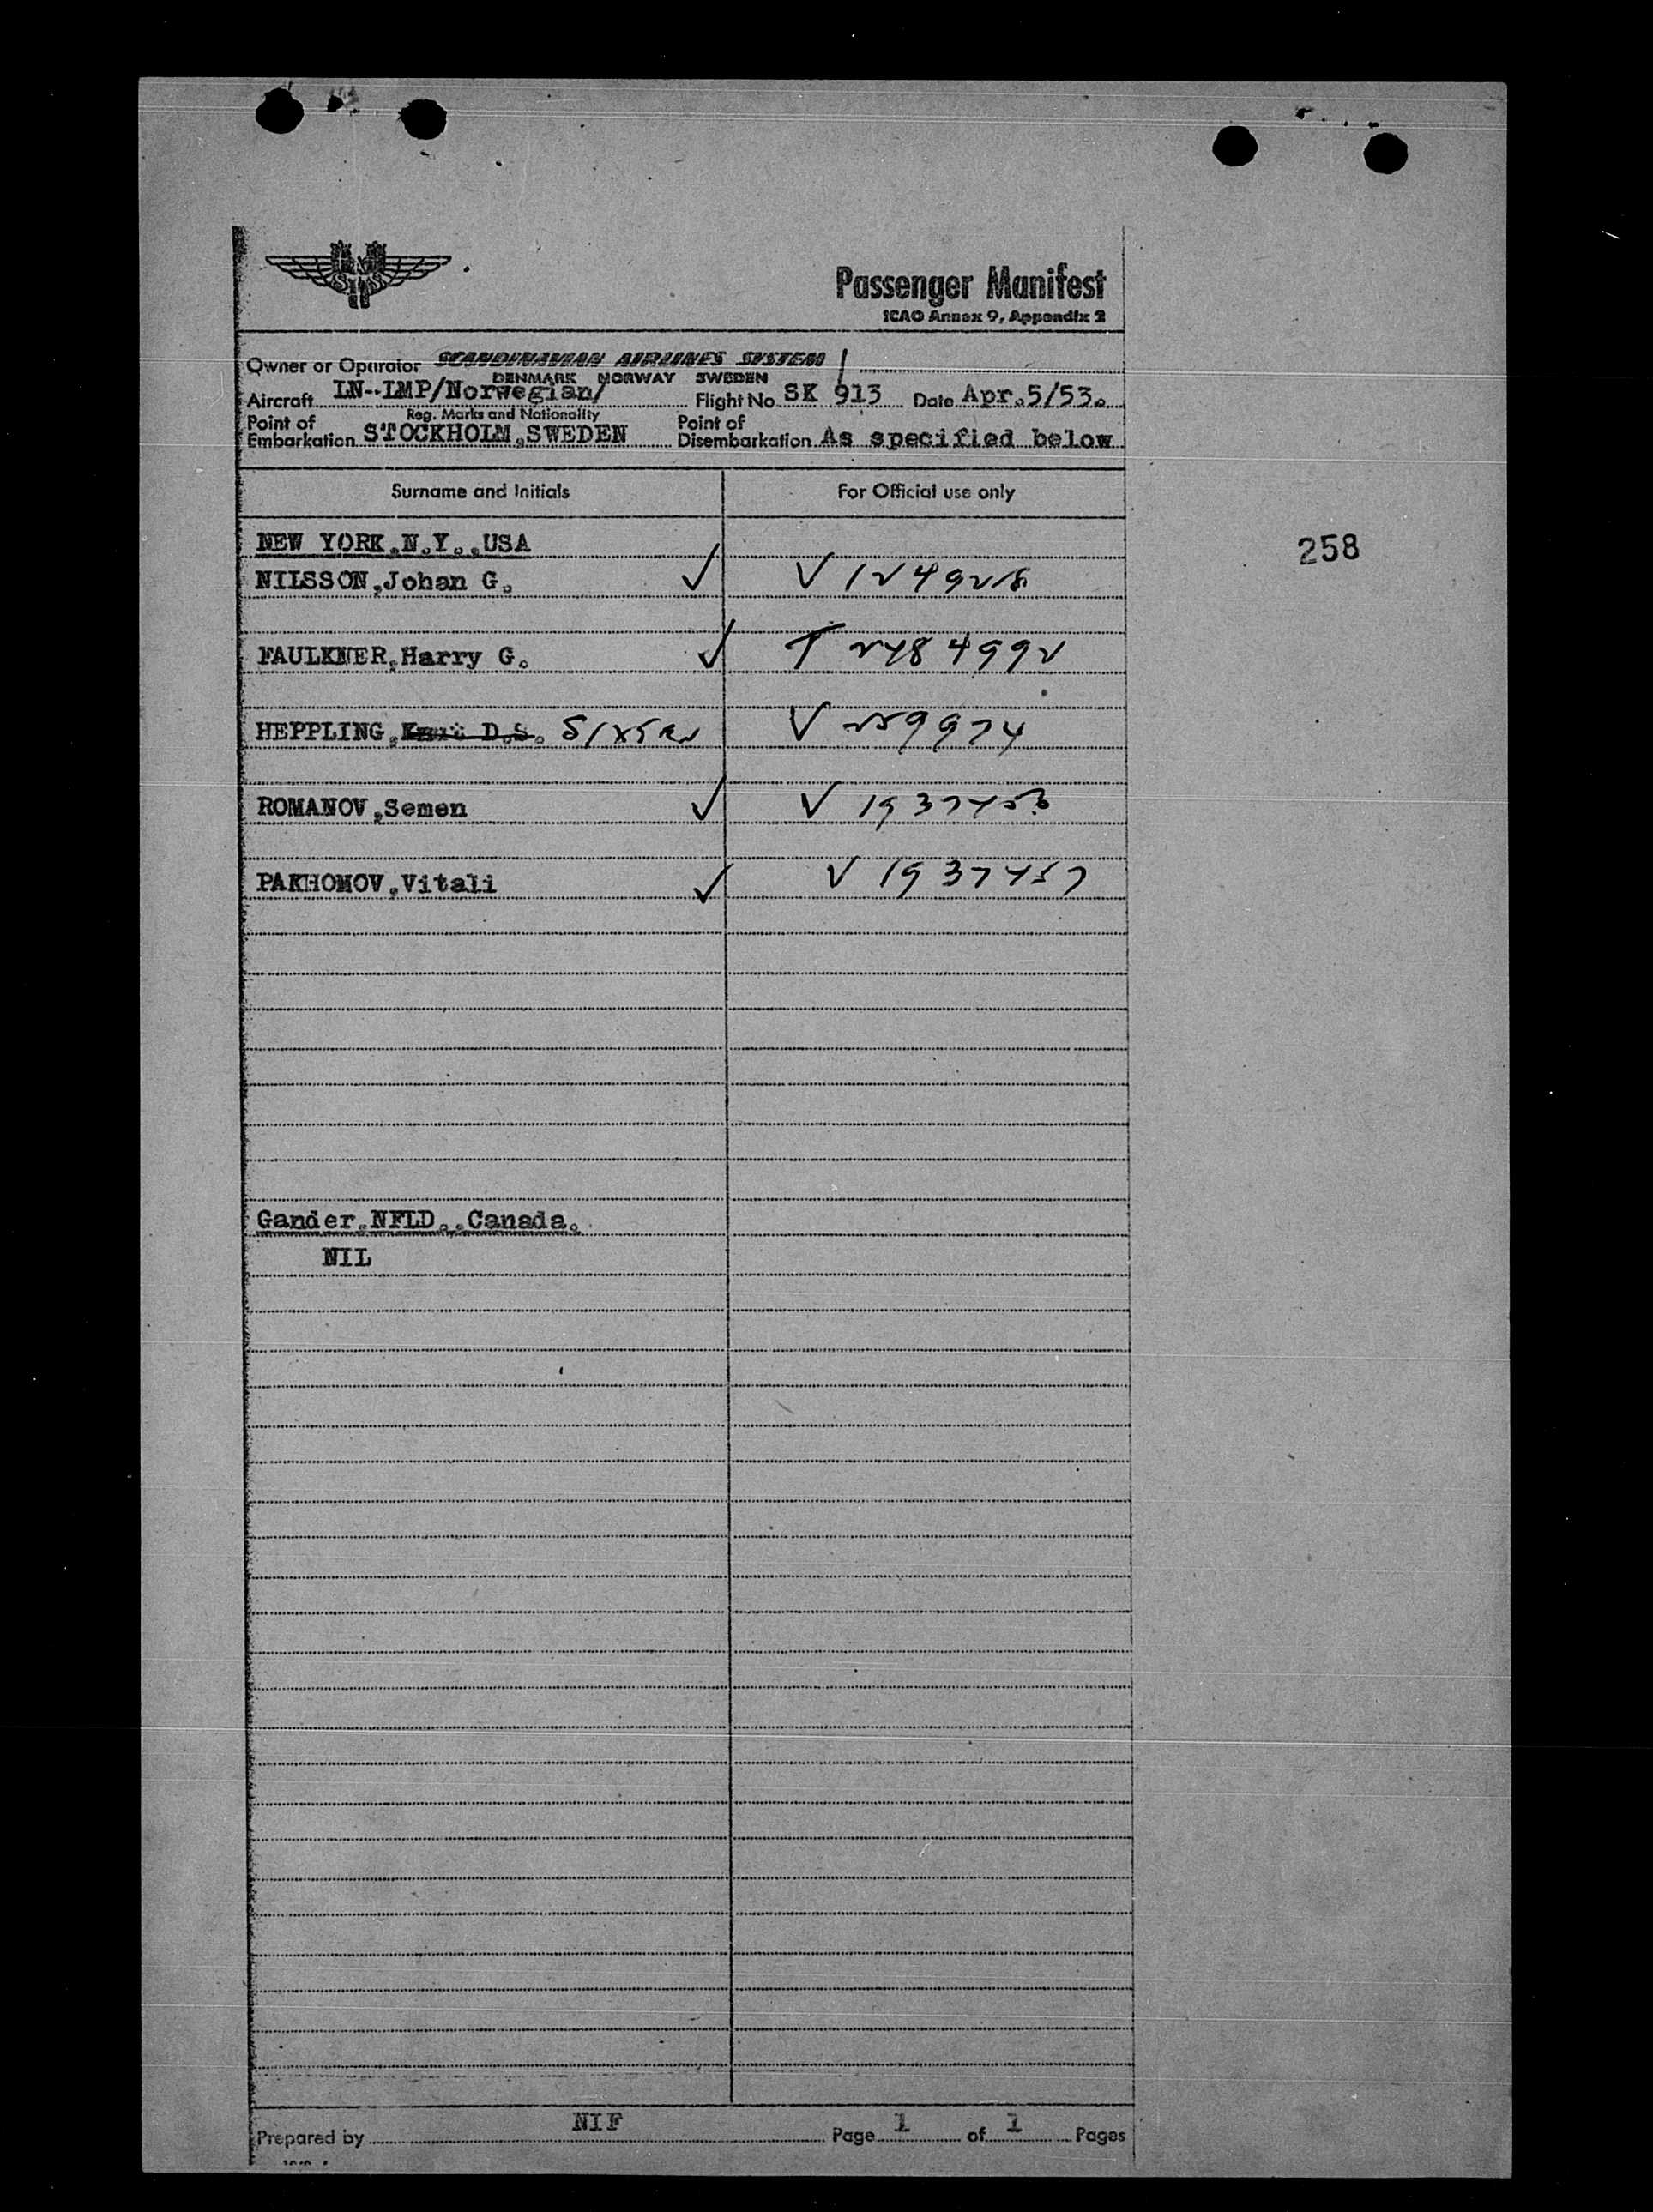 SAS
Passenger Manifest
ICAO Annex 9, Appendix 2
Owner or Operator SCANDINAVIAN AIRLINES SYSTEM
DENMARK NORWAY SWEDEN
Aircraft LN-LMP/Norwegian/ Flight No SK 913 Date Apr.5/53.
Reg. Marks and Nationality
Point of Embarkation STOCKHOLM,SWEDEN Point of Disembarkation As specified below
Surname and Initials For Official use only
NEW YORK,N.Y.,USA
258
NILSSON,Johan G. ✓ V 1249218
FAULKNER,Harry G. ✓ T 2484992
HEPPLING, D.S. SIXTEN V 259974
ROMANOV,Semen ✓ V 1937453
PAKHOMOV,Vitali ✓ V 1937457
Gander,NFLD.,Canada.
NIL
Prepared by NIF Page 1 of 1 Pages